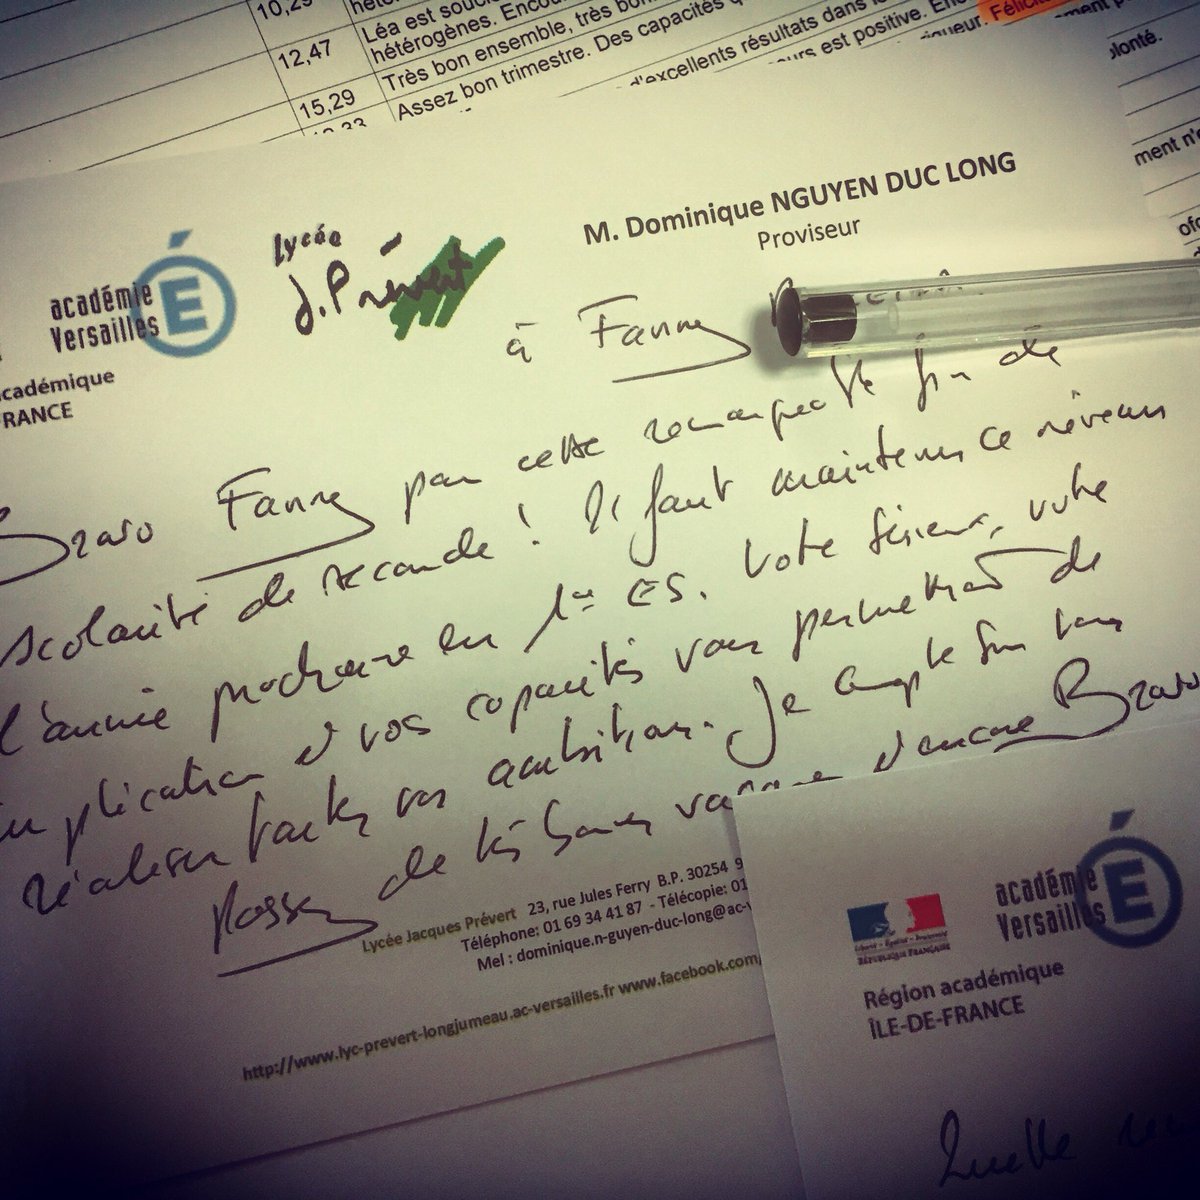 10,29
12,47
Léa est
hétérogènes. Encou
15,29
Très bon ensemble, très bon
Assez bon trimestre. Des capacités
d'excellents résultats dans
urs est positive. En
Félici
ment
lonté.
ment n'e
M. Dominique NGUYEN DUC LONG
Proviseur
académie
Versailles
É
Lycée
J. Prévert
cadémique
RANCE
à Fanny
Bravo Fanny pour cette remarquable fin de
scolarité de seconde ! Il faut maintenir ce niveau
l'année prochaine en 1ère ES. Votre sérieux, votre
implication et vos capacités vous permettront de
réaliser toutes vos ambitions. Je compte sur vous
et encore Bravo
Passez de très bonnes vacances
Lycée Jacques Prévert 23, rue Jules Ferry B.P. 30254 9
Téléphone: 01 69 34 41 87 - Télécopie: 01
Mel : dominique.n-guyen-duc-long@ac-v
http://www.lyc-prevert-longjumeau.ac-versailles.fr www.facebook.com/
Liberté • Égalité • Fraternité
RÉPUBLIQUE FRANÇAISE
académie
Versailles
É
Région académique
ÎLE-DE-FRANCE
Quelle